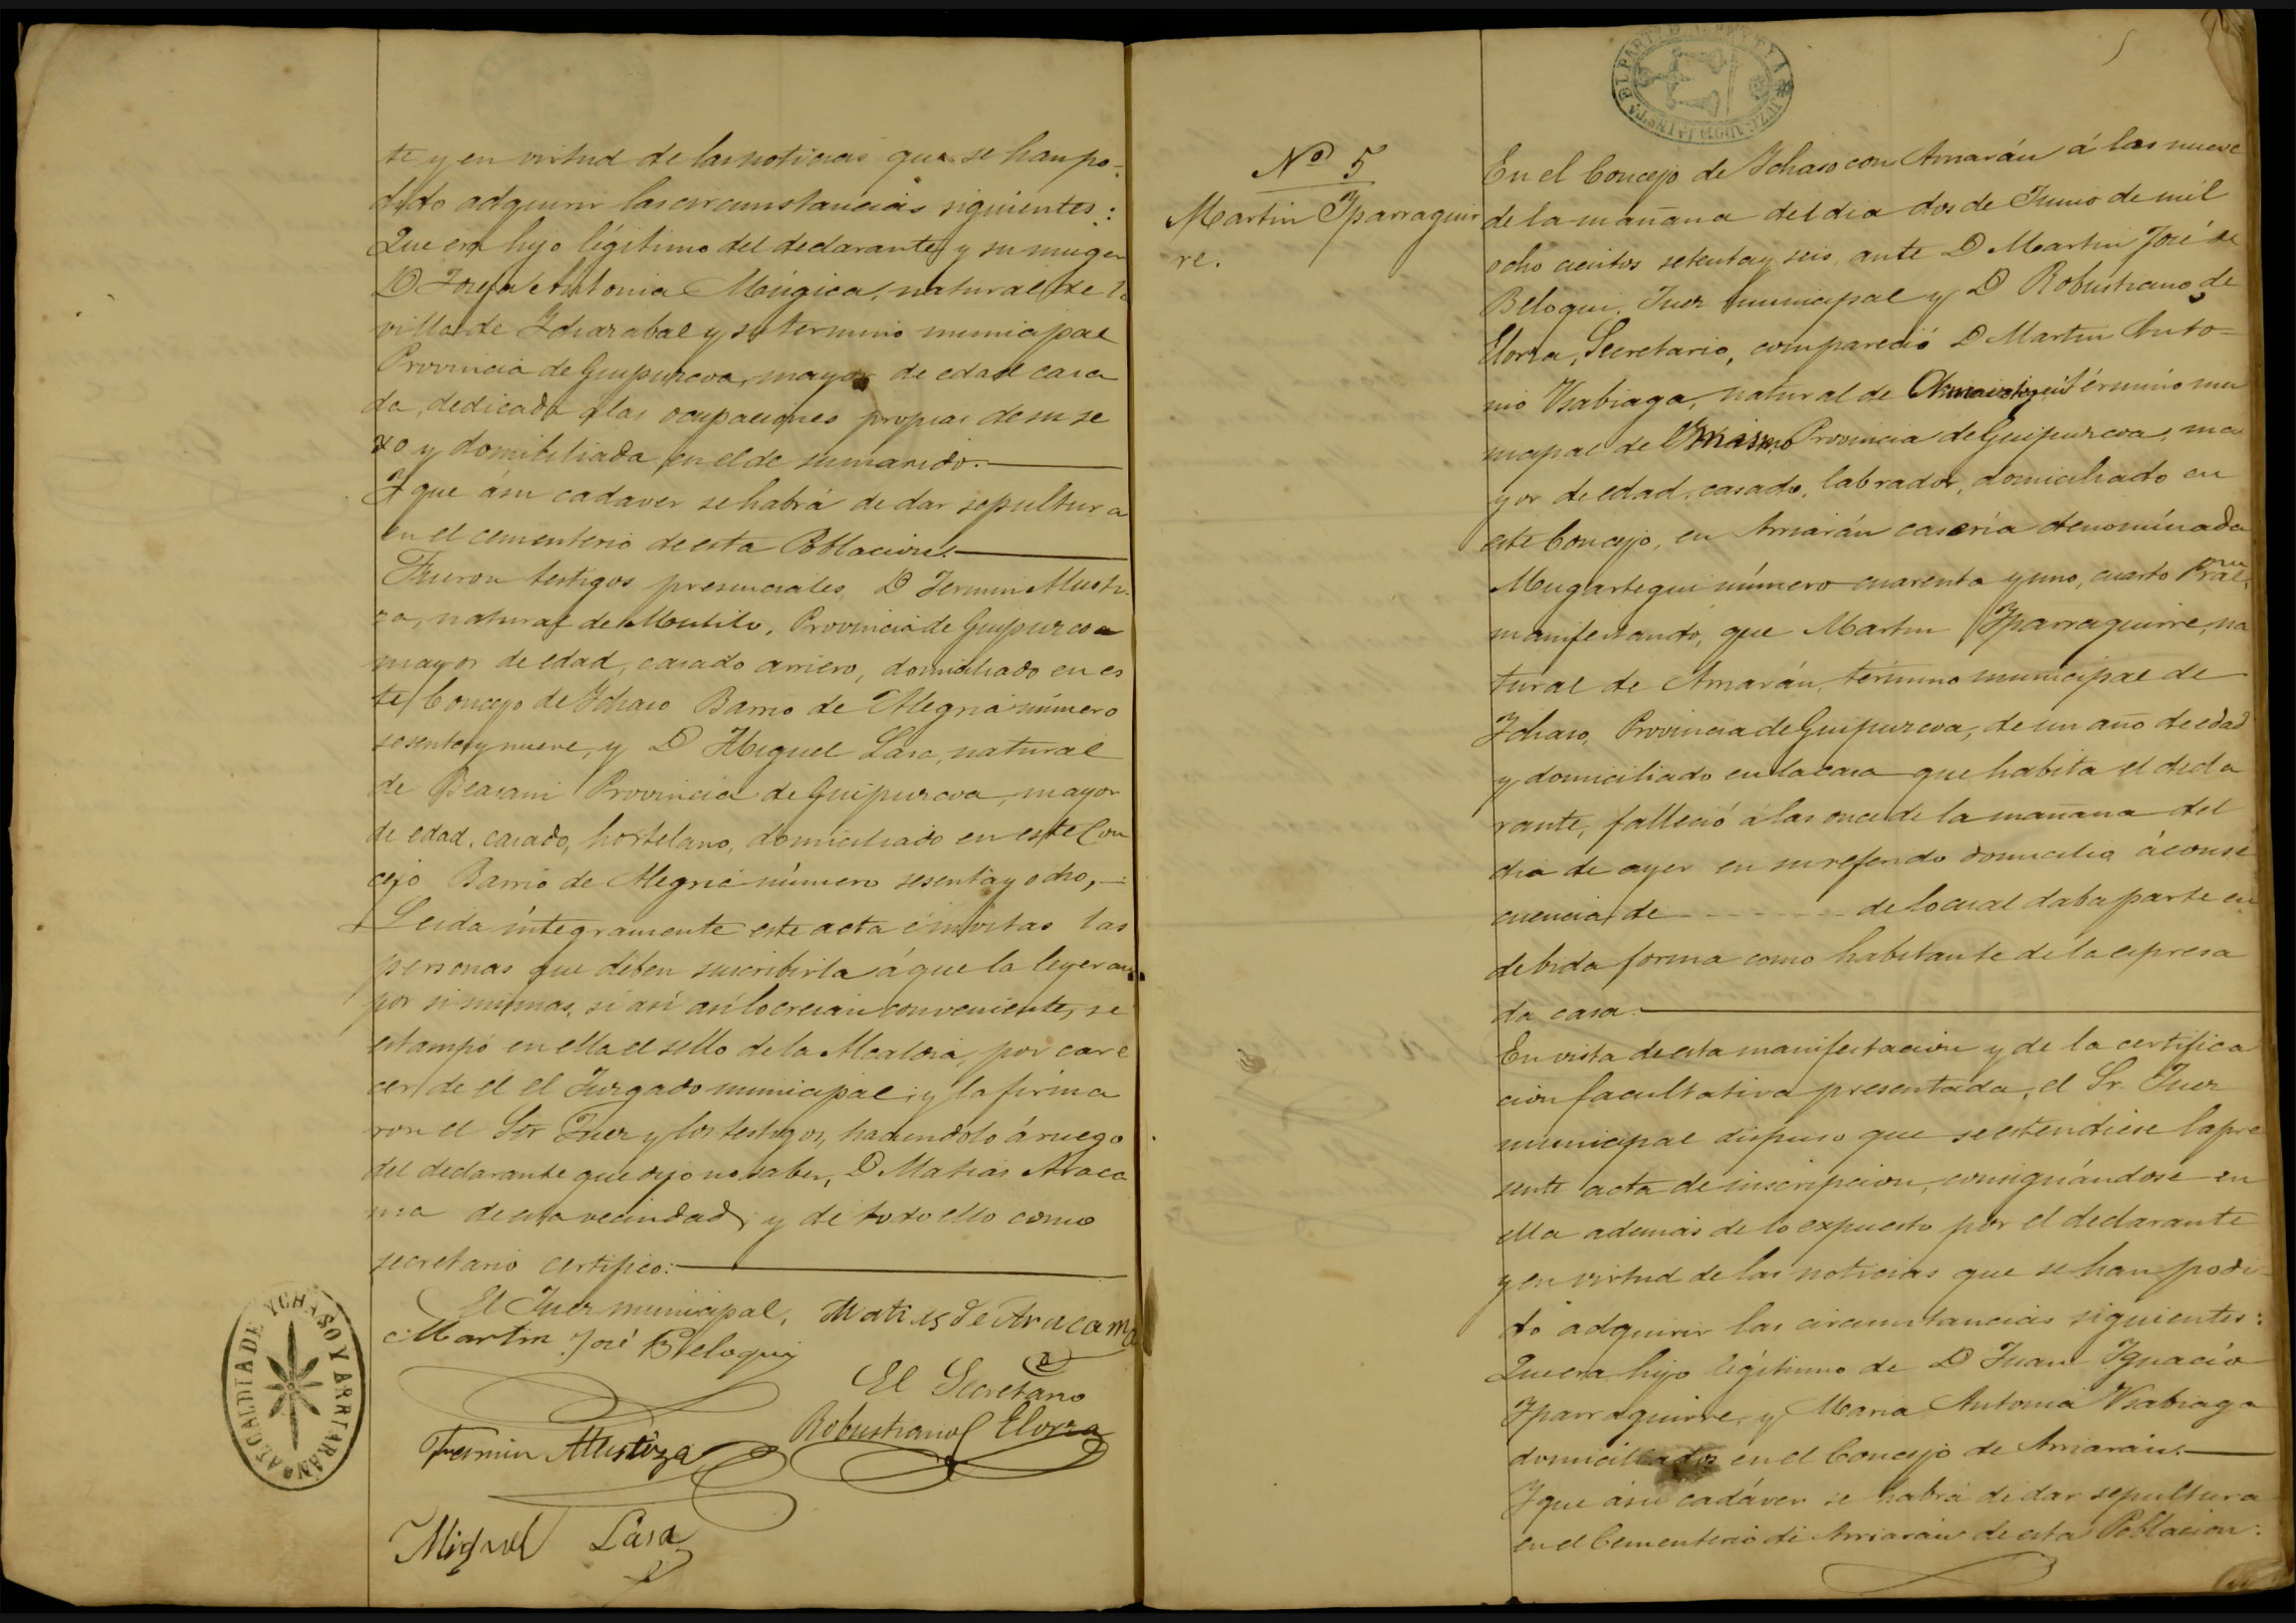 te y en virtud de las noticias que se han po-
dido adquirir las circunstancias siguientes:
Que era hijo légitimo del declarante y su muger
D Josefa Antonia Múgica, natural de la
villa de Idiazabal y su termino municipal
Provincia de Guipuzcoa, mayor de edad casa
da, dedicada a las ocupaciones propias de su se
xo y domiciliada en el de su marido.
Y que á su cadaver se habrá de dar sepultura
en el cementerio de esta Poblacion.
Fueron testigos presenciales, D Fermin Alusti-
za, natural de Mutilo, Provincia de Guipuzcoa
mayor de edad, casado arriero, domiciliado en es
te Concejo de Ichaso Barrio de Alegria número
sesenta y nueve, y D Miguel Lasa, natural
de Beasain Provincia de Guipuzcoa, mayor
de edad, casado, hortelano, domiciliado en este Con
cejo Barrio de Alegria número sesenta y ocho,
Leida íntegramente este acta é invitas las
personas que deben suscribirla á que la leyeran
por si mismas, si así así lo creian conveniente, se
estampó en ella el sello de la Alcaldia, por care
cer de el el Juzgado municipal; y la firma
ron el Sor Juez y los testigos, haciendolo á ruego
del declarante que dijo no saber, D Matias Araca
ma de esta vecindad; y de todo ello como
secretario certifico:
El Juez municipal, Matias de Aracama
Martin José Beloqui
El Secretario
Robustiano Elorza
Fermin Alustiza
Miguel Lasa
ALCALDIA DE YCHASO Y ARRIARAN
5
Nº 5
Martin Yparraguir
re.
En el Concejo de Ichaso con Arriarán á las nueve
de la mañana del dia dos de Junio de mil
ocho cientos setenta y seis, ante D Martin José de
Beloqui, Juez municipal y D Robustiano de
Elorza, Secretario, compareció D Martin Anto-
nio Ysabiaga, natural de término mu
nicipal de Provincia de Guipuzcoa, ma
yor de edad, casado, labrador, domiciliado en
este Concejo, en Arriarán caseria denomínada
Mugartegui número cuarenta y uno, cuarto Pral,
manifestando, que Martin Yparraguirre, na
tural de Arriarán, término municipal de
Ichaso, Provincia de Guipuzcoa, de un año de edad
y domiciliado en la casa que habita el decla
rante, falleció á las once de la mañana del
dia de ayer en su referido domicilio á conse
cuencia de - - - - - - - - de lo cual daba parte en
debida forma como habitante de la espresa
da casa.
En vista de esta manifestacion y de la certifica
cion facultativa presentada, el Sr. Juez
municipal dispuso que se estendiese la pre
sente acta de inscripcion, consignándose en
ella además de lo expuesto por el declarante
y en virtud de las noticias que se han podi-
do adquirir las circunstancias siguientes:
Que era hijo legítimo de D Juan Ygnacio
Yparraguirre, y Maria Antonia Ysabiaga
domiciliados en el Concejo de Arriarán.
Y que á su cadáver se habrá de dar sepultura
en el Cementerio de Arriarán de esta Poblacion.